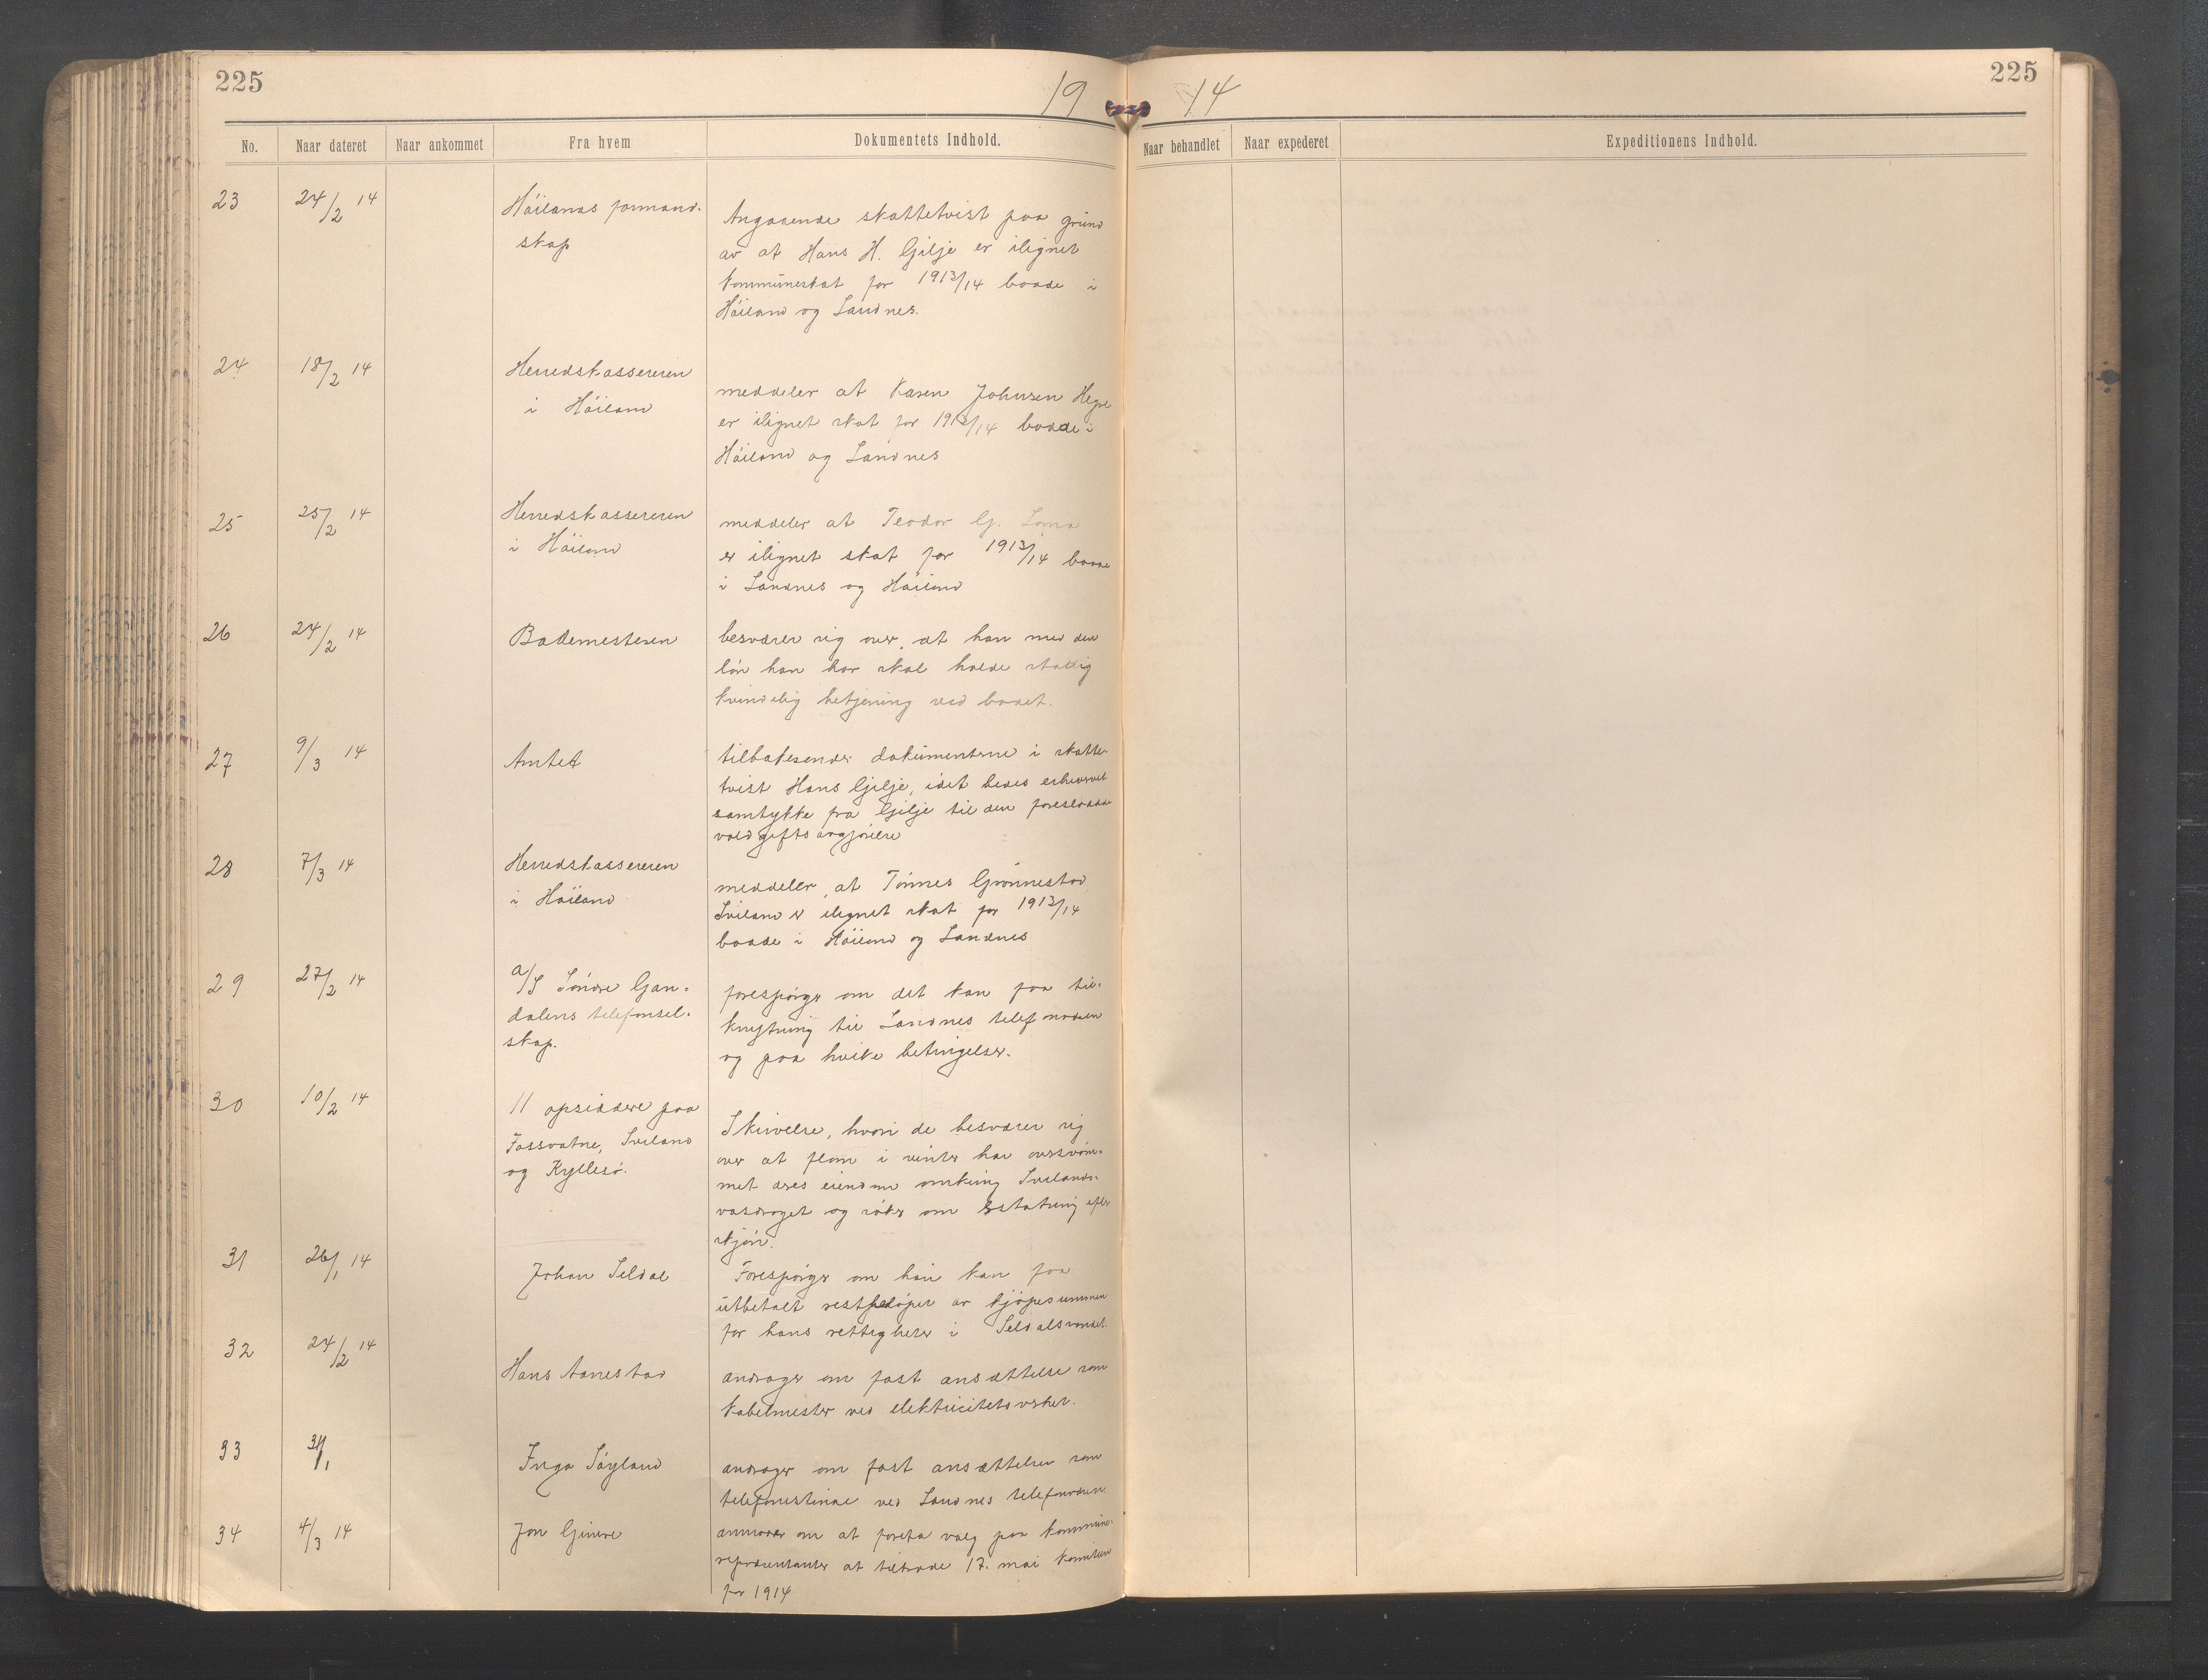 225
19
14
225
No.
Naar dateret
Naar ankommet
Fra hvem
Dokumentets Indhold.
Naar behandlet
Naar expederet
Expeditionens Indhold.
23
24/2 14
Höilands formand-
skap
Angaaende skattetvist paa grund
av at Hans H. Gilje er ilignet
kommuneskat for 1913/14 baade i
Höiland og Sandnes.
24
18/2 14
Herredskassereren
i Höiland
meddeler at Karen Johnsen Hegre
er ilignet skat for 1913/14 baade i
Höiland og Sandnes
25
25/2 14
Herredskassereren
i Höiland
meddeler at Teodor G.
er ilignet skat for 1913/14 baade
i Sandnes og Höiland
26
24/2 14
Bademesteren
besværer sig over, at han med den
lön han har skal holde stadig
kvindelig betjening ved badet.
27
9/3 14
Amtet
tilbakesender dokumenterne i skatte-
tvist Hans Gilje, idet bedes erhvervet
samtykke fra Gilje til den foreslaade
voldgiftsavgjörelse
28
7/3 14
Herredskassereren
i Höiland
meddeler, at Tönnes Grönnestad
Sviland er ilignet skat for 1913/14
baade i Höiland og Sandnes
29
27/2 14
a/S Söndre Gan-
dalens telefonsel-
skap.
forespörger om det kan faa til-
knytning til Sandnes telefonvæsen
og paa hvilke betingelser.
30
10/2 14
11 opsiddere paa
Fossvatne, Sviland
og Kyllesö.
Skrivelse, hvori de besværer sig
over at flom i vinter har oversvöm-
met deres eiendom omkring Svilands-
vasdraget og söker om erstatning efter
skjön.
31
26/1 14
Johan Seldal
Forespörger om han kan faa
utbetalt restbelöpet av kjöpesummen
for hans rettigheter i Seldalsvandet.
32
24/2 14
Hans Aanestad
andrager om fast ansættelse som
kabelmester ved elektricitetsverket.
33
31/1
Inga Söyland
andrager om fast ansættelse som
telefonistinde ved Sandnes telefonvæsen
34
4/3 14
Jon Gimre
anmoder om at foreta valg paa kommune-
repræsentanter at tiltræde 17. mai komiteen
for 1914